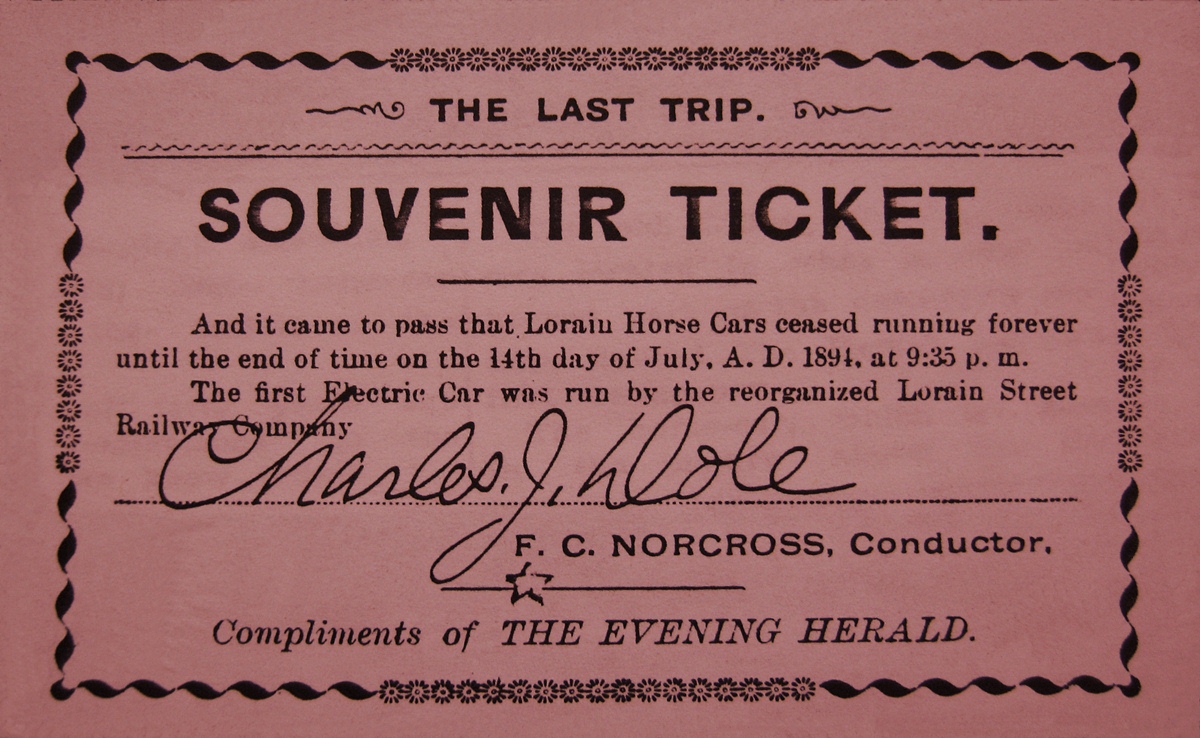 THE LAST TRIP.
SOUVENIR TICKET.
And it came to pass that Lorain Horse Cars ceased running forever
until the end of time on the 14th day of July, A. D. 1894, at 9:35 p. m.
The first Electric Car was run by the reorganized Lorain Street
Railway Company
Charles. J. Dole
F. C. NORCROSS, Conductor.
Compliments of THE EVENING HERALD.